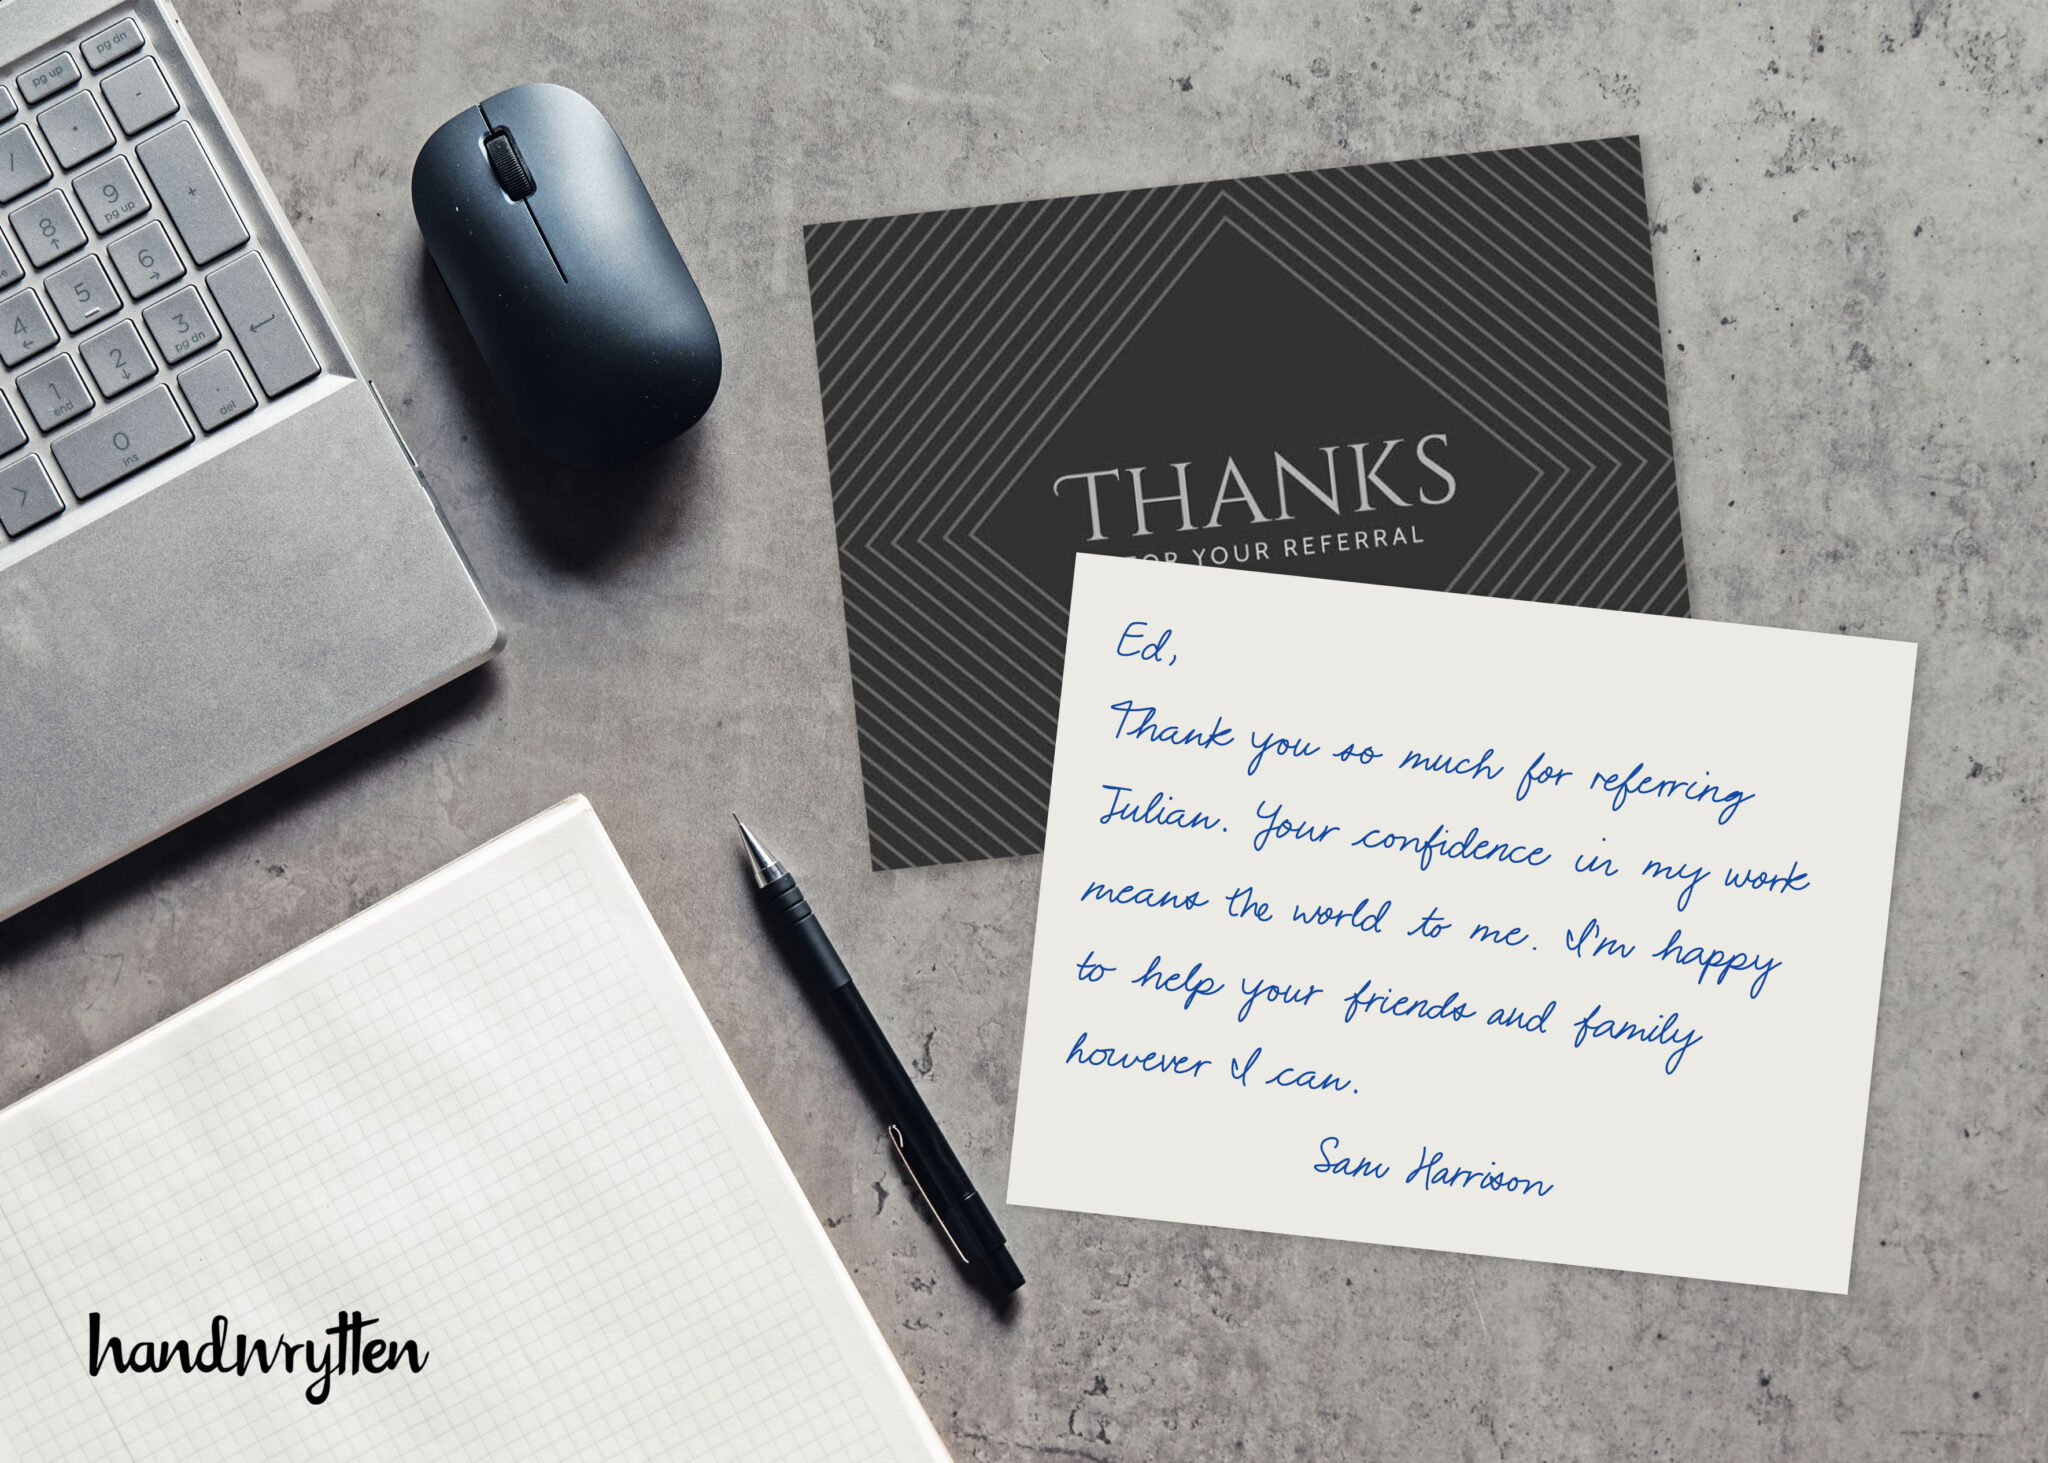 pg dn
pg up
-
*
/
+
9
pg up
8
6
5
4
3
pg dn
2
1
end
.
del
0
ins
THANKS
FOR YOUR REFERRAL
Ed,
Thank you so much for referring
Julian. Your confidence in my work
means the world to me. I'm happy
to help your friends and family
however I can.
Sam Harrison
handwrytten